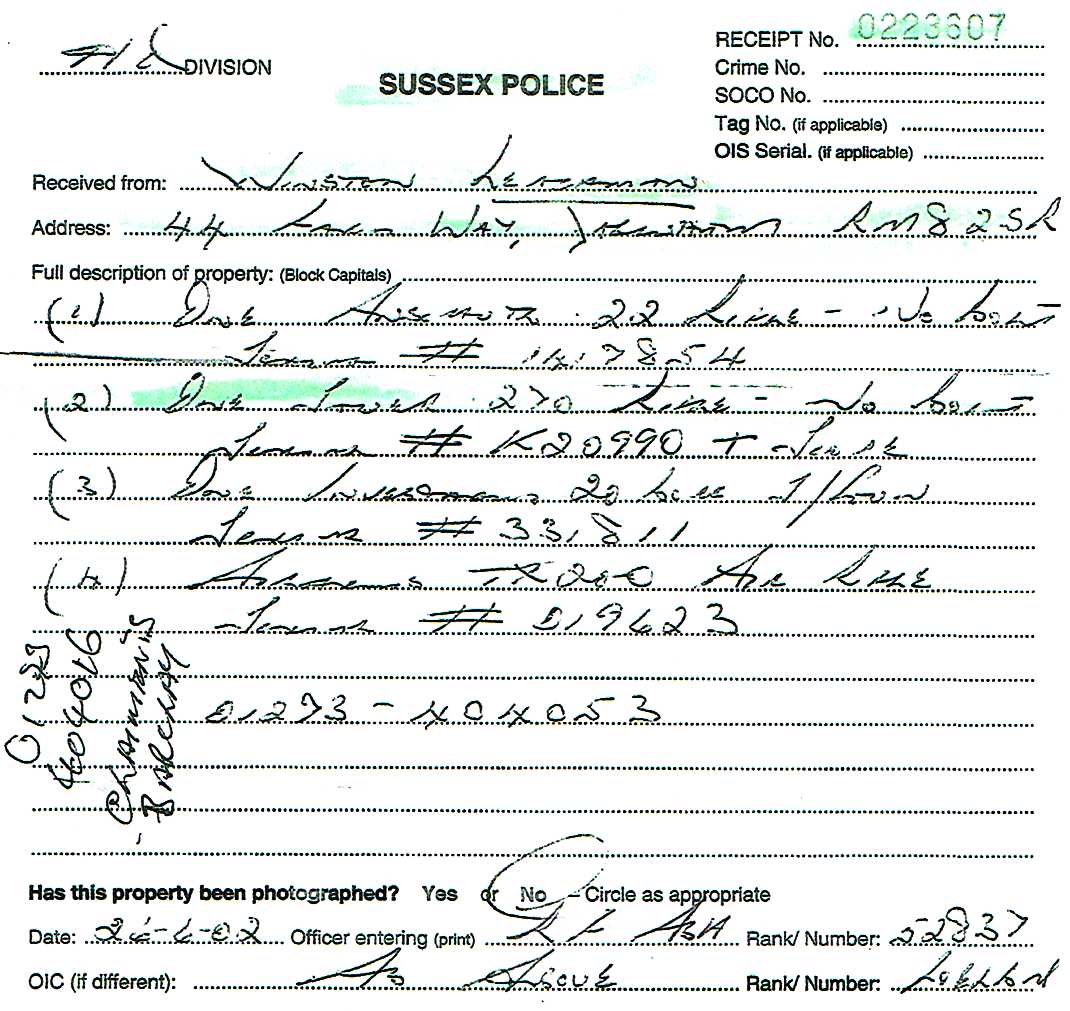 DIVISION
SUSSEX POLICE
RECEIPT No. 0223607
Crime No.
SOCO No.
Tag No. (if applicable)
OIS Serial. (if applicable)
Received from: WINSTON
Address: 44 WAY, RM8 2SR
Full description of property: (Block Capitals)
(1) ONE ANSCHUTZ .22 RIFLE - NO BOLT
SERIAL # 1417854
(2) ONE .270 RIFLE - NO BOLT
SERIAL # K20990 +
(3) ONE 20 BORE S/GUN
SERIAL # 331811
(4) TX200 AIR RIFLE
SERIAL # 019623
01273 - 404053
01273
404016
BARCLAY
Has this property been photographed? Yes or No – Circle as appropriate
Date: 26-6-02 Officer entering (print) ASH Rank/ Number:
OIC (if different): AS ABOVE Rank/ Number: